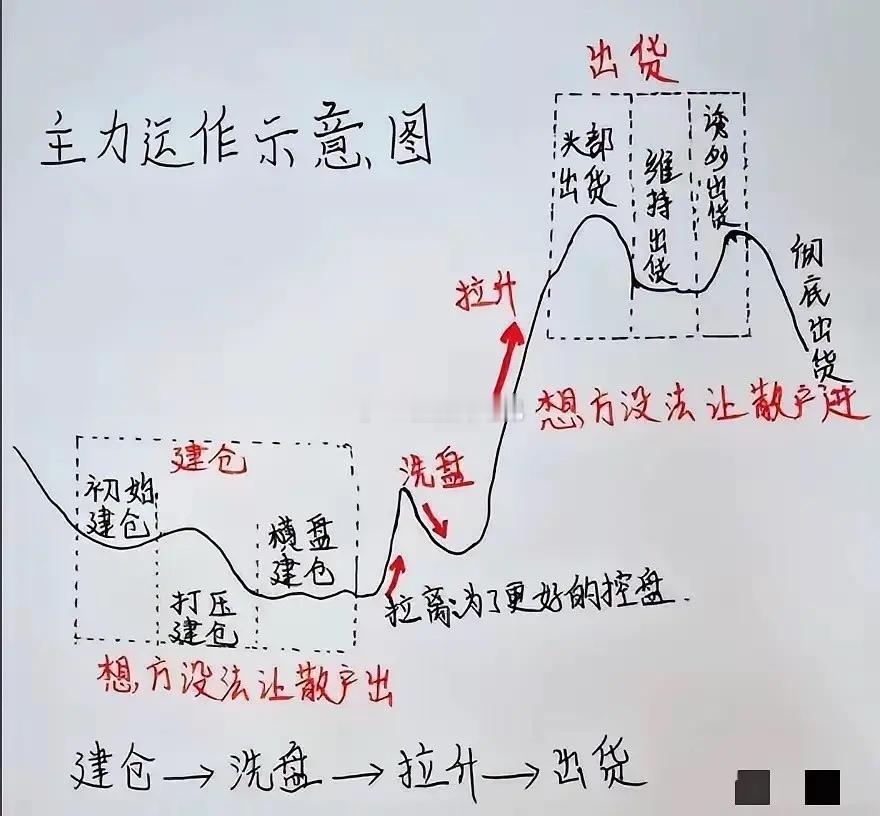 主力运作示意图
出货
头部
出货
维持出货
诱多出货
彻底出货
拉升
想方设法让散户进
建仓
初始
建仓
打压
建仓
横盘
建仓
洗盘
拉离为了更好的控盘.
想方设法让散户出
建仓→洗盘→拉升→出货